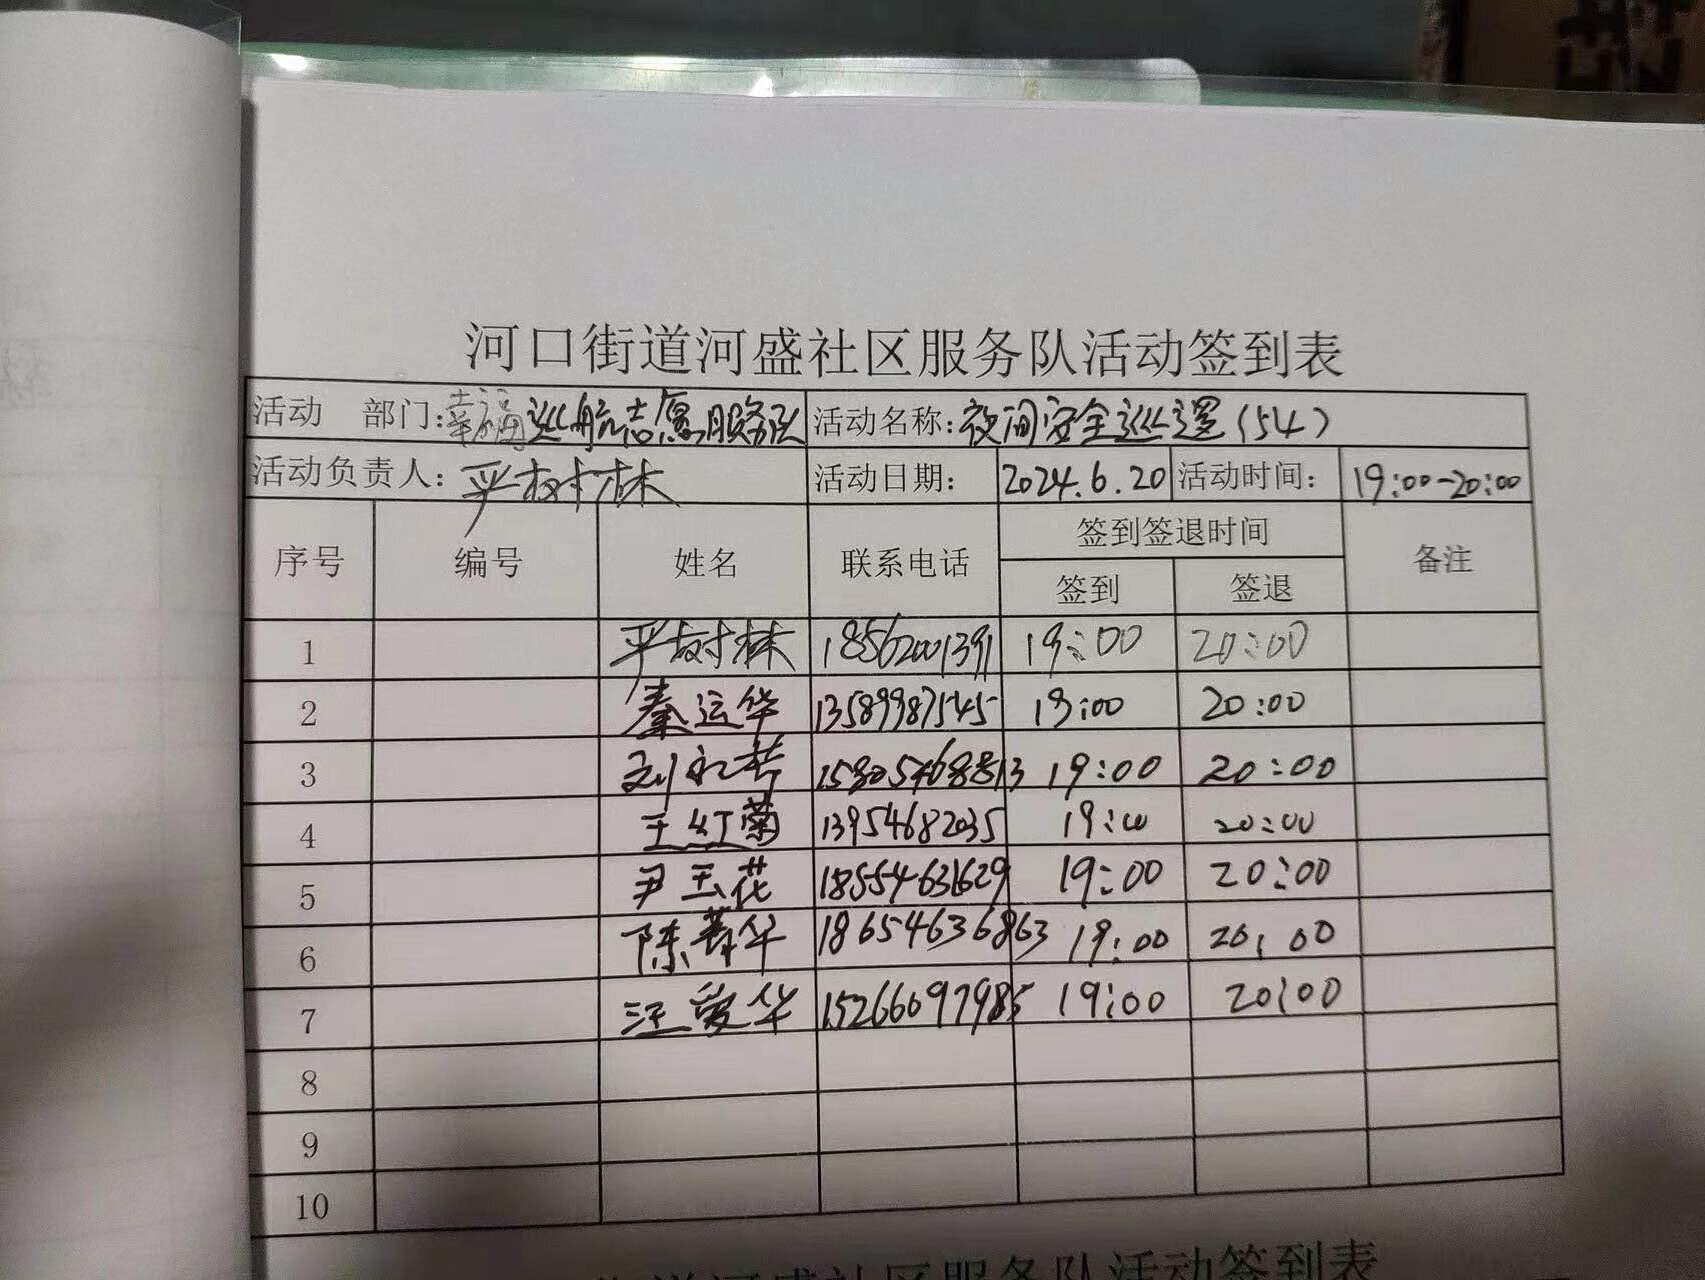 河口街道河盛社区服务队活动签到表
活动 部门:幸福巡航志愿服务队 活动名称:夜间安全巡逻(54)
活动负责人:严树林 活动日期: 2024.6.20 活动时间: 19:00-20:00
序号 编号 姓名 联系电话 签到签退时间 备注
签到 签退
1 严树林 18562001391 19:00 20:00
2 秦运华 13589987545 19:00 20:00
3 刘永芳 15805468813 19:00 20:00
4 王红菊 13954682035 19:00 20:00
5 尹玉花 18554631629 19:00 20:00
6 陈春华 18654636863 19:00 20:00
7 汪爱华 15266097985 19:00 20:00
8
9
10
河盛社区服务队活动签到表